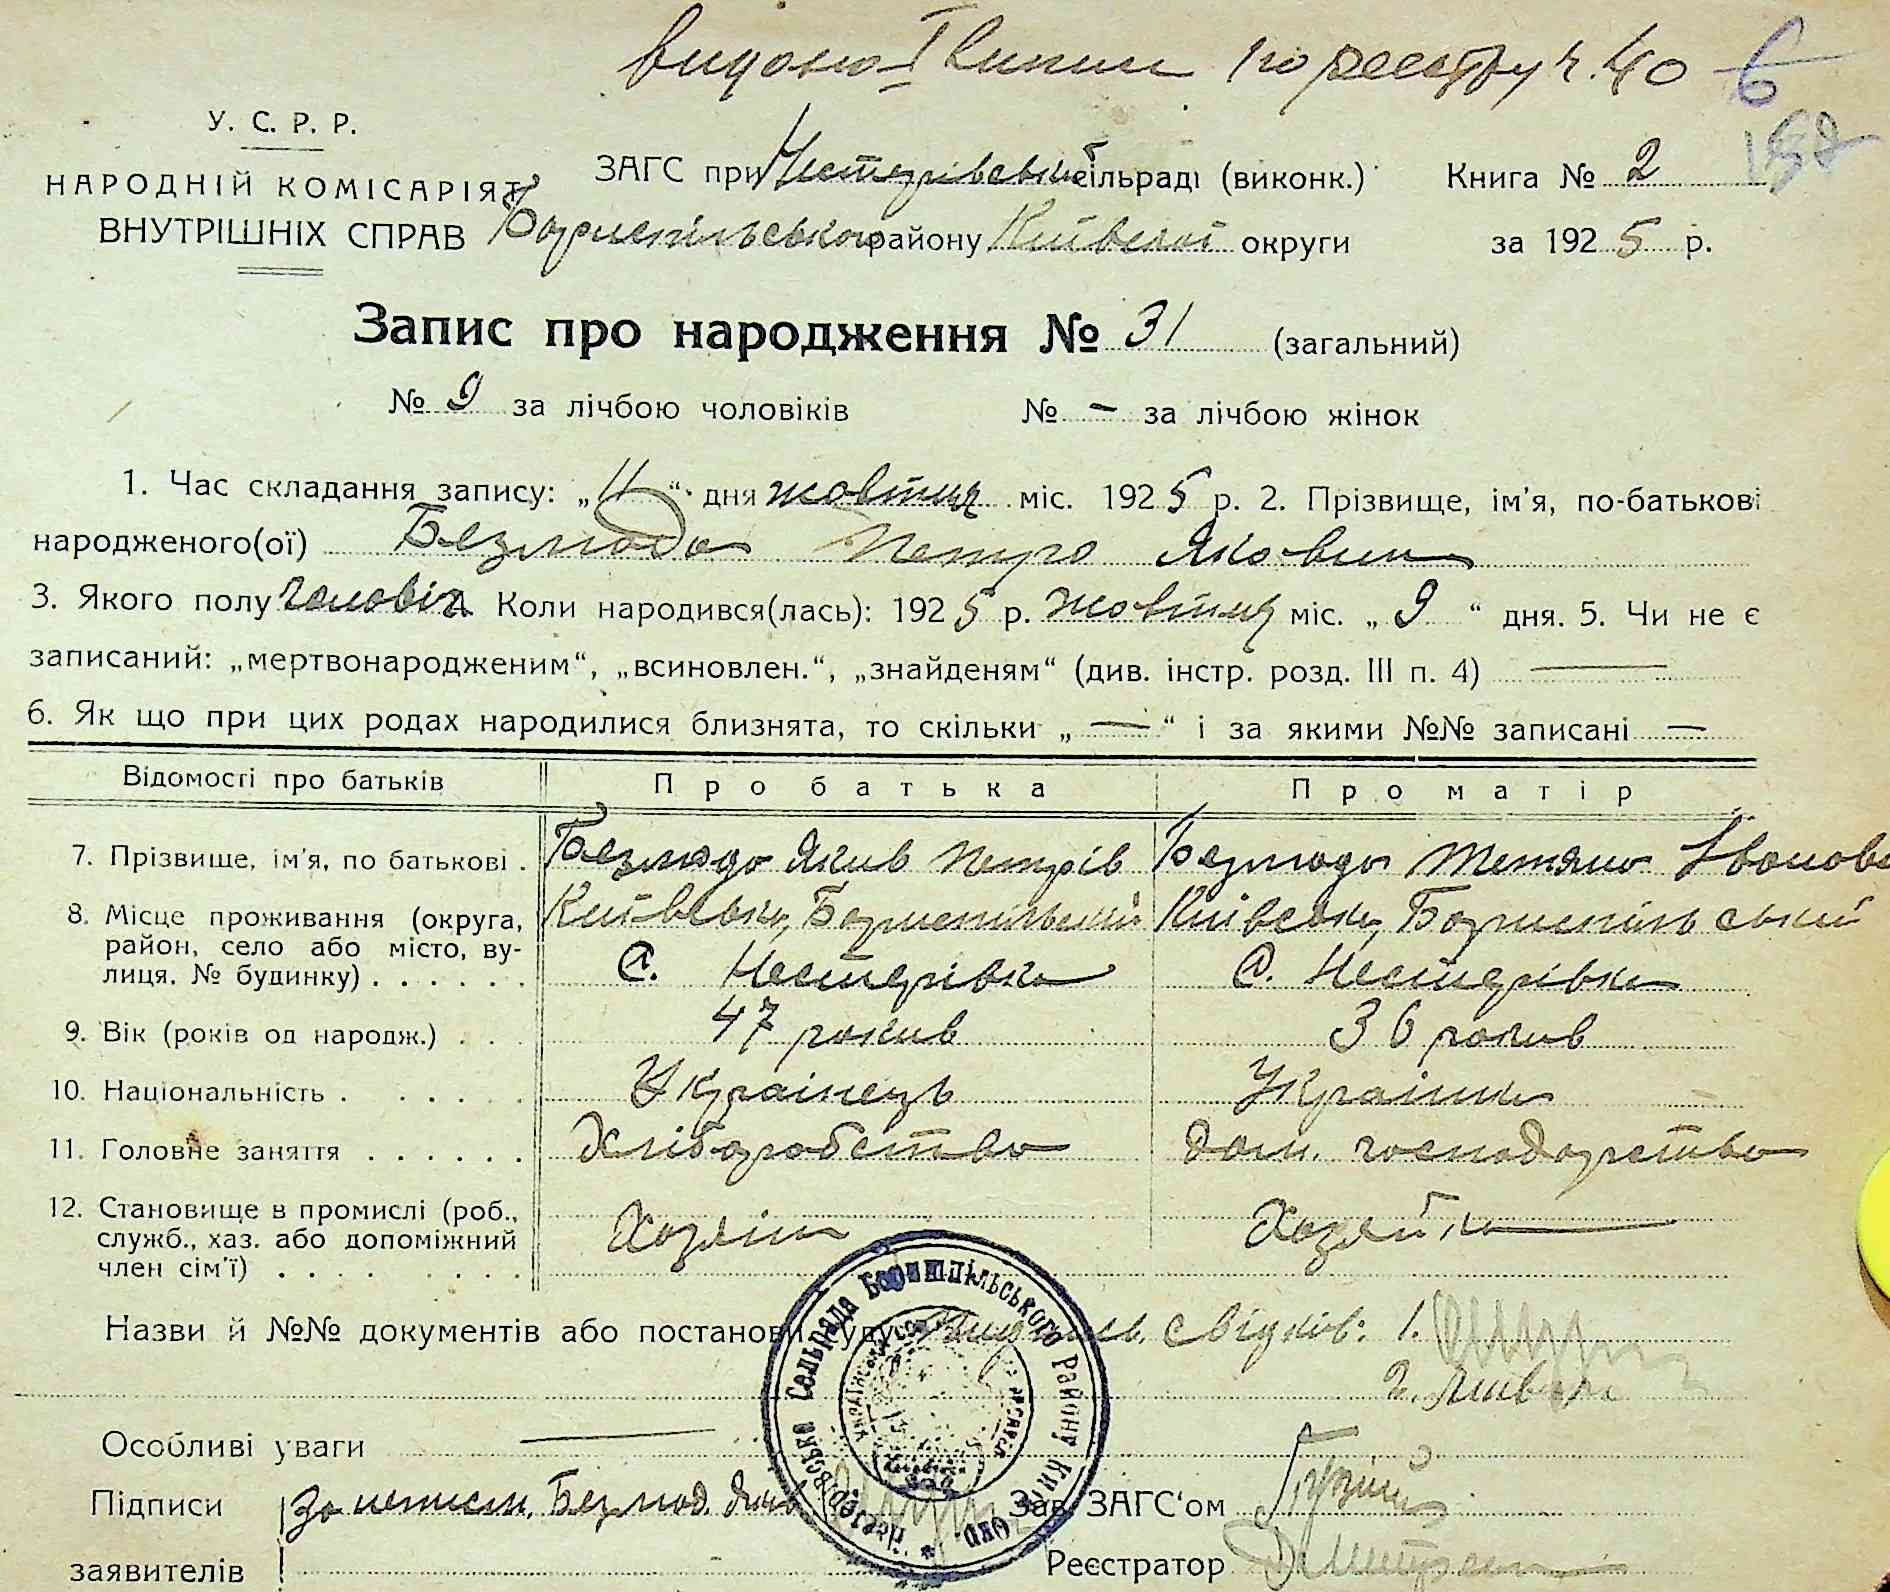 видано I випис по реєстру ч. 40 6
152
У. С. Р. Р.
НАРОДНІЙ КОМІСАРІЯТ
ВНУТРІШНІХ СПРАВ
ЗАГС при Нестерівській сільраді (виконк.) Книга № 2
Бориспільського району Київської округи за 1925 р.
Запис про народження № 31 (загальний)
№ 9 за лічбою чоловіків № – за лічбою жінок
1. Час складання запису: „11“ дня жовтня міс. 1925 р. 2. Прізвище, ім'я, по-батькові
народженого(ої) Безмода Петро Якович
3. Якого полу чоловіч. Коли народився(лась): 1925 р. жовтня міс. „9“ дня. 5. Чи не є
записаний: „мертвонародженим“, „всиновлен.“, „знайденям“ (див. інстр. розд. III п. 4) —
6. Як що при цих родах народилися близнята, то скільки „—“ і за якими №№ записані —
Відомості про батьків Про батька Про матір
7. Прізвище, ім'я, по батькові . Безмода Яков Петрів Безмода Тетяна Іванова
8. Місце проживання (округа, Київська, Бориспільський Київська, Бориспільський
район, село або місто, ву-
лиця, № будинку) . . . . . . с. Нестерівка с. Нестерівка
9. Вік (років од народж.) . . . 47 роков 36 роков
10. Національність . . . . . . Украінець Украінка
11. Головне заняття . . . . . . Хліборобство дом. господарство
12. Становище в промислі (роб., Хозяін Хозяйка
служб., хаз. або допоміжний
член сім'ї) . . . . . . . .
Назви й №№ документів або постанови суду: свідків: 1.
2.
Особливі уваги —
Підписи За неписм. Безмод. Яков Зав. ЗАГС'ом
заявителів Реєстратор
Сельрада Бориспільського Району Київ Окр.